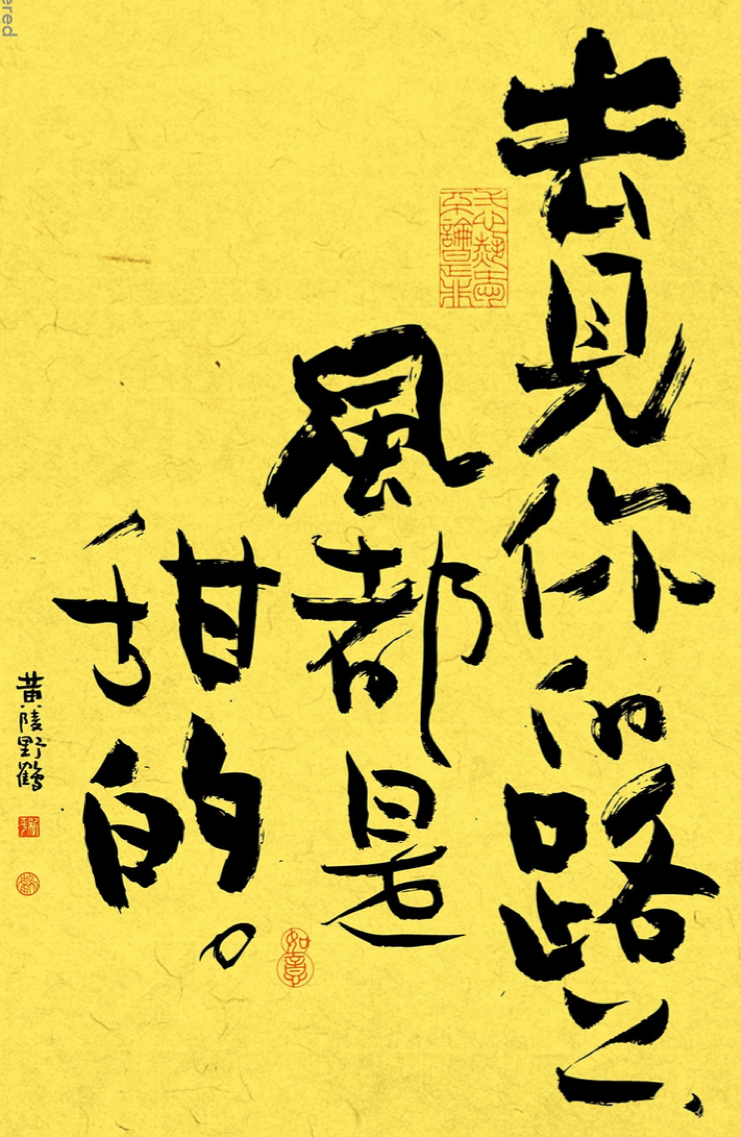 ered
去見你的路上、
風都是
甜的。
如意
黄陵野鶴